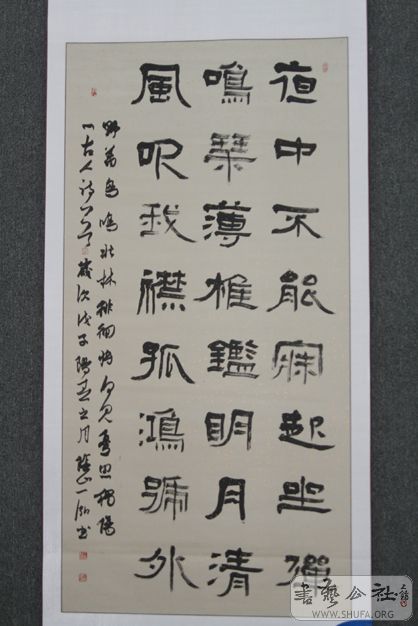 夜中不能寐起坐彈
鳴琴薄帷鑑明月清
風吹我襟孤鴻號外
野翔鳥鳴北林徘徊將何見憂思獨傷
心古人詩一首歲次戊子陽春之月書
書藝公社
WWW.SHUFA.ORG